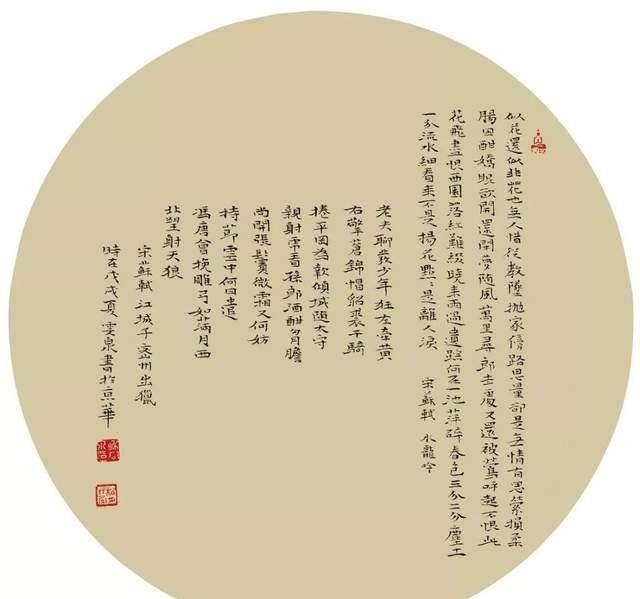 似花還似非花也无人惜從教墜拋家傍路思量卻是无情有思縈損柔
腸困酣嬌眼欲開還閉夢随風萬里尋郎去處又還被鶯呼起不恨此
花飛盡恨西園落紅難綴曉来雨過遺蹤何在一池萍碎春色三分二分塵土
一分流水細看来不是楊花點〻是離人淚 宋蘇軾 水龍吟
老夫聊發少年狂左牽黃
右擎蒼錦帽貂裘千騎
捲平岡為報傾城随太守
親射虎看孫郎酒酣胸膽
尚開張鬢微霜又何妨
持節雲中何日遣
馮唐會挽雕弓如滿月西
北望射天狼
宋蘇軾 江城子 密州出獵
時在戊戌夏雯泉書於京華